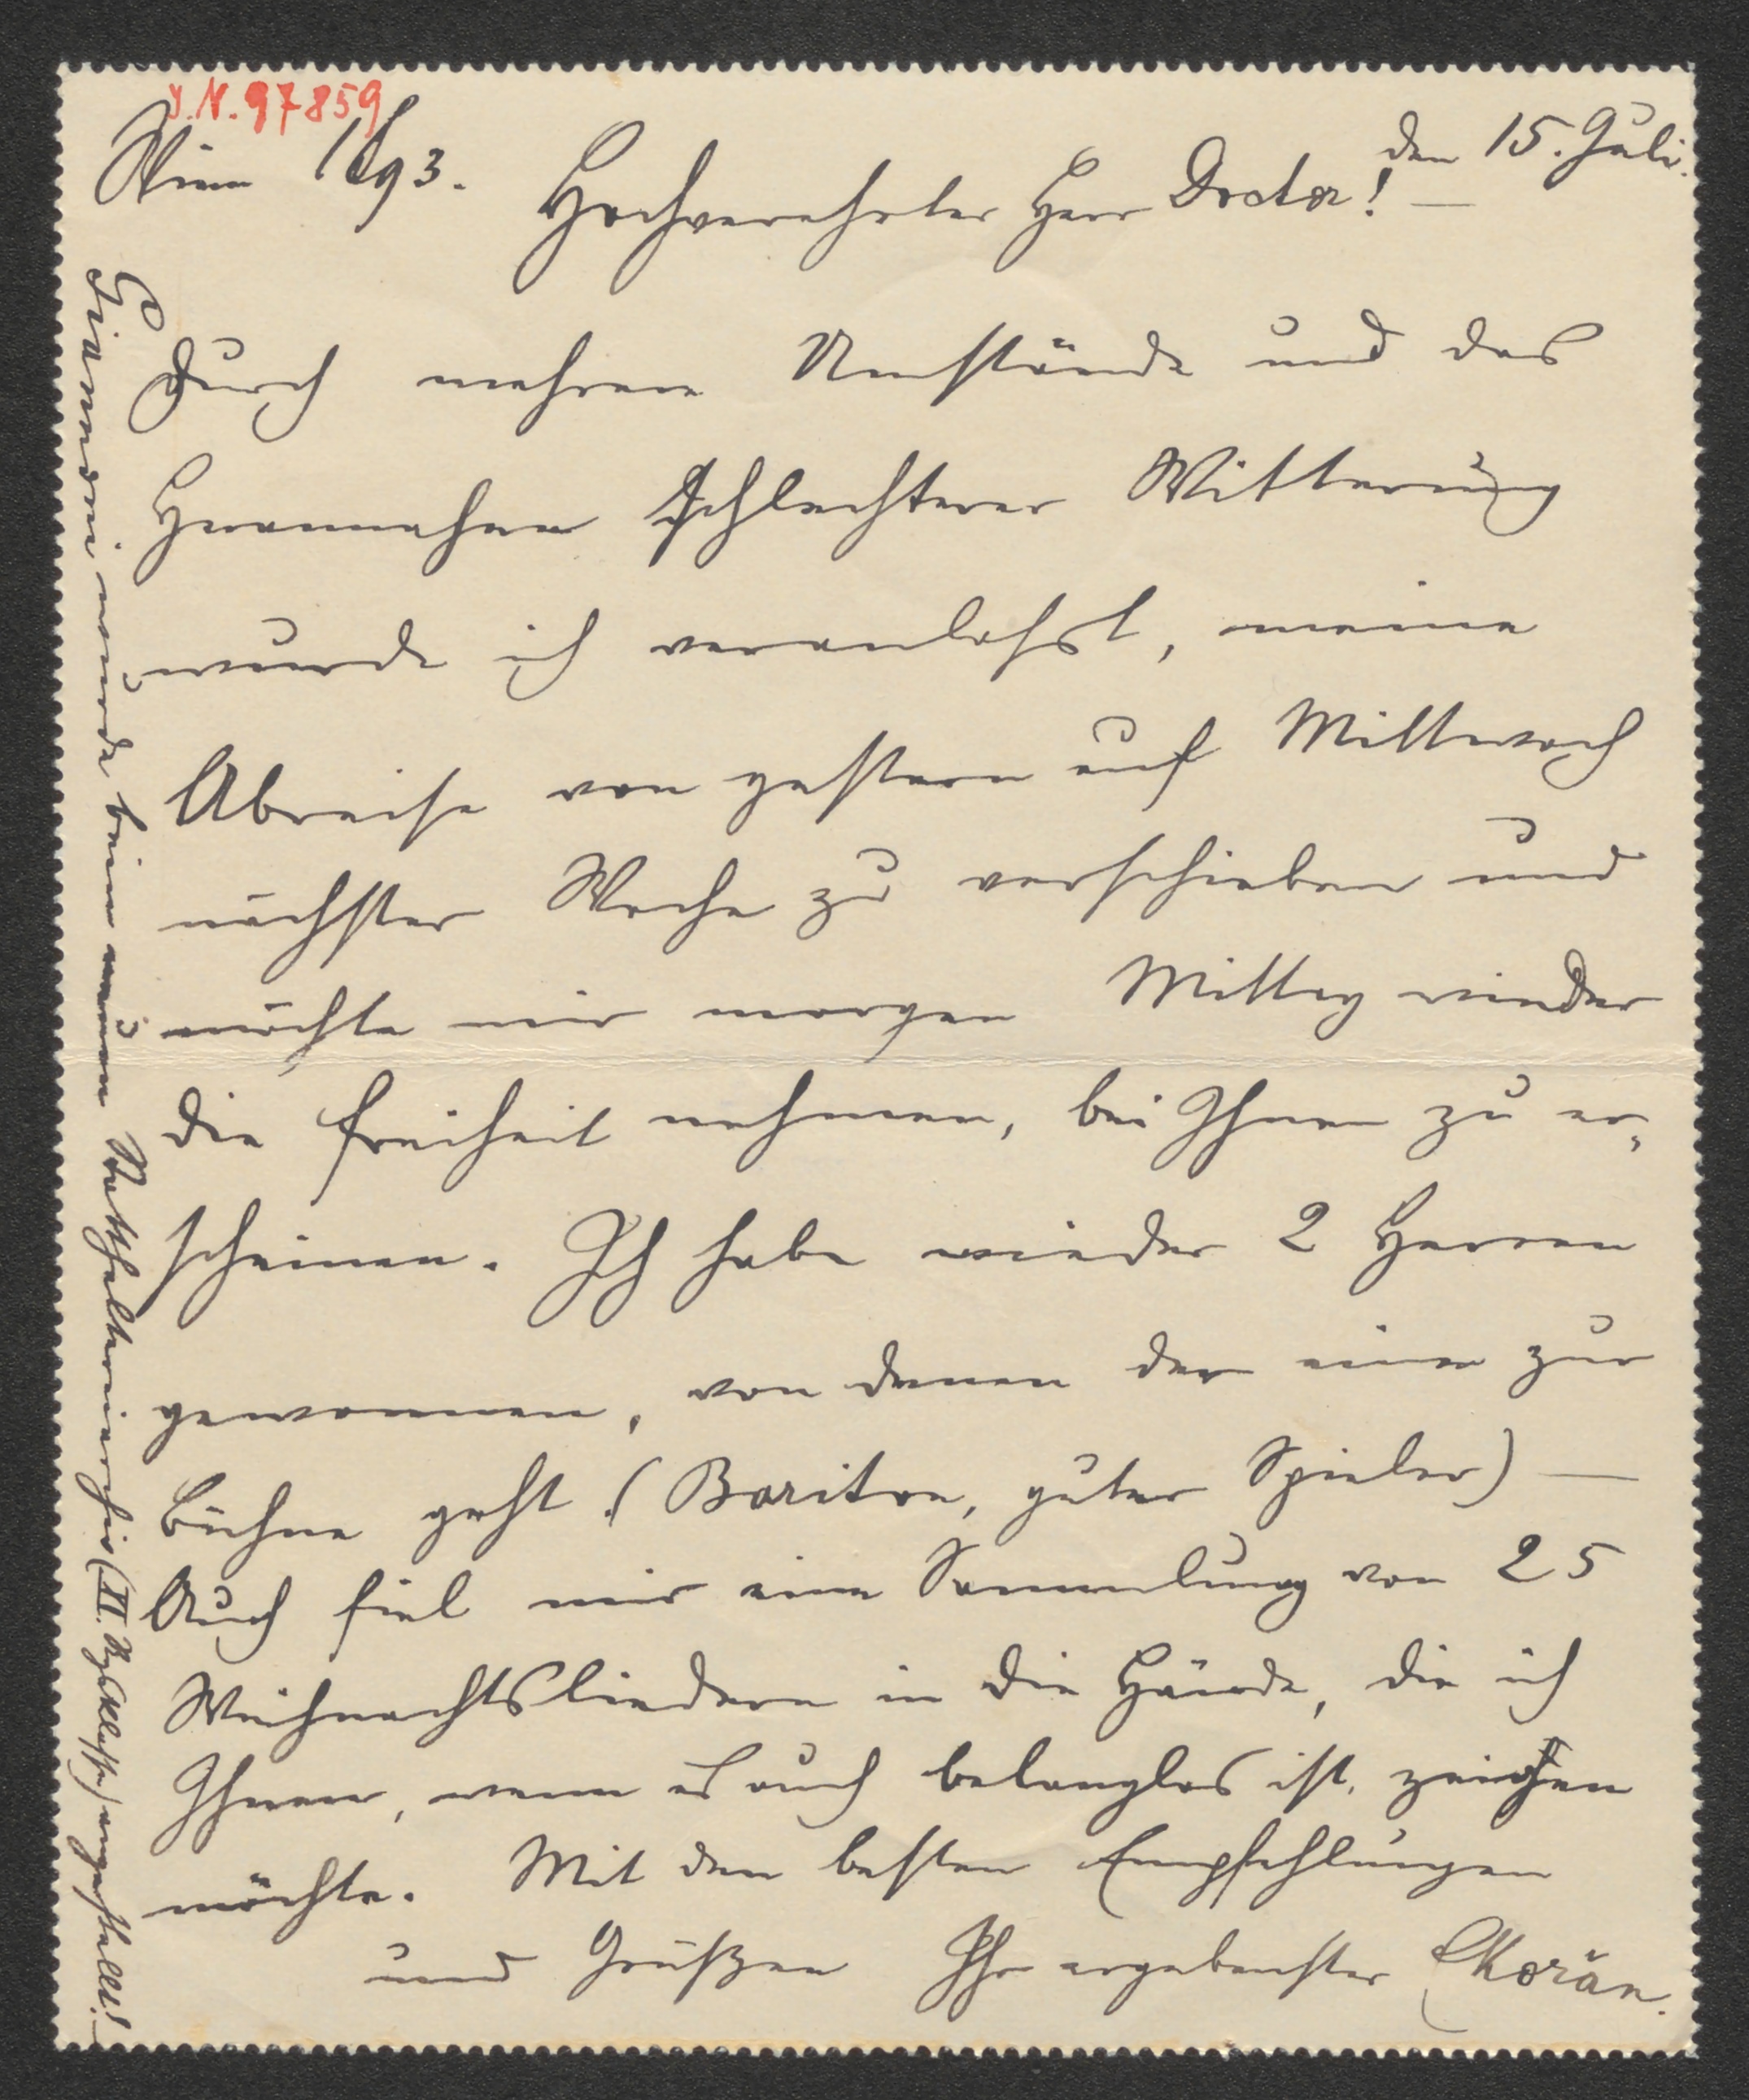 J.N. 97859
Wien 1893. den 15. Juli.
Hochverehrter Herr Doctor! —
Durch mehrere Umstände und das
Herannahen schlechterer Witterung
wurde ich veranlaßt, meine
Abreise von gestern auf Mittwoch
nächster Woche zu verschieben und
möchte mir morgen Mittag wieder
die Freiheit nehmen, bei Ihnen zu er-
scheinen. Ich habe wieder 2 Herren
gewonnen, von denen der eine zur
Bühne geht. (Bariton, guter Spieler) —
Auch fiel mir eine Sammlung von 25
Weihnachtsliedern in die Hände, die ich
Ihnen, wenn es auch belanglos ist, zeigen
möchte. Mit den besten Empfehlungen
und Grüßen Ihr ergebenster
Giannoni wurde beim neuen Statthaltereiarchiv (II. Rgsklasse) angestellt! —